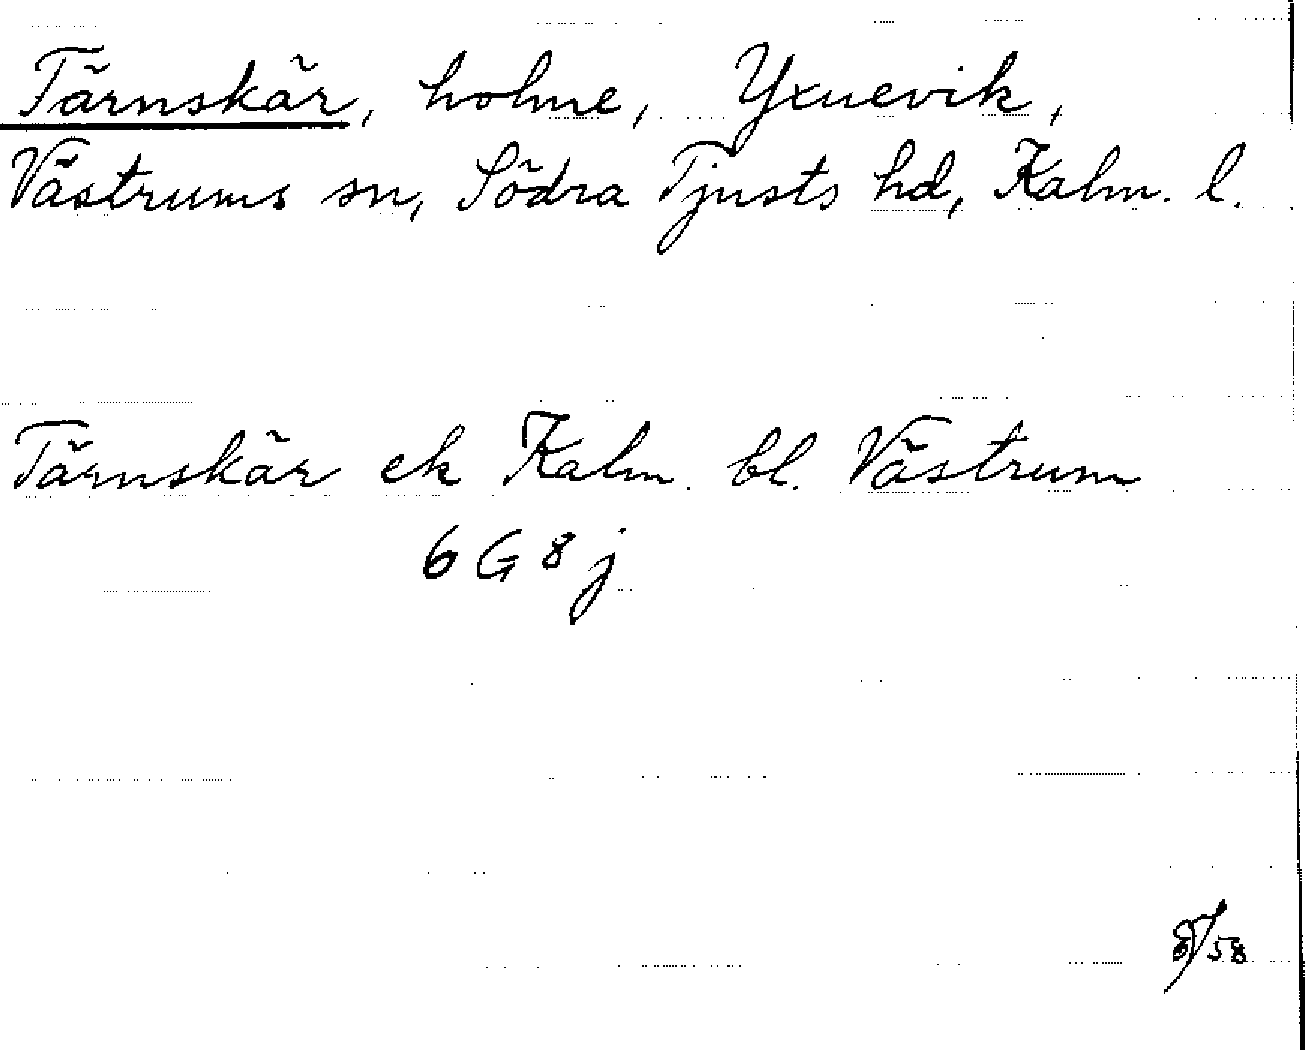 Tärnskär, holme, Yxnevik,
Västrums sn, Södra Tjusts hd, Kalm. l.
Tärnskär ek Kalm. bl. Västrum
6 G 8 j